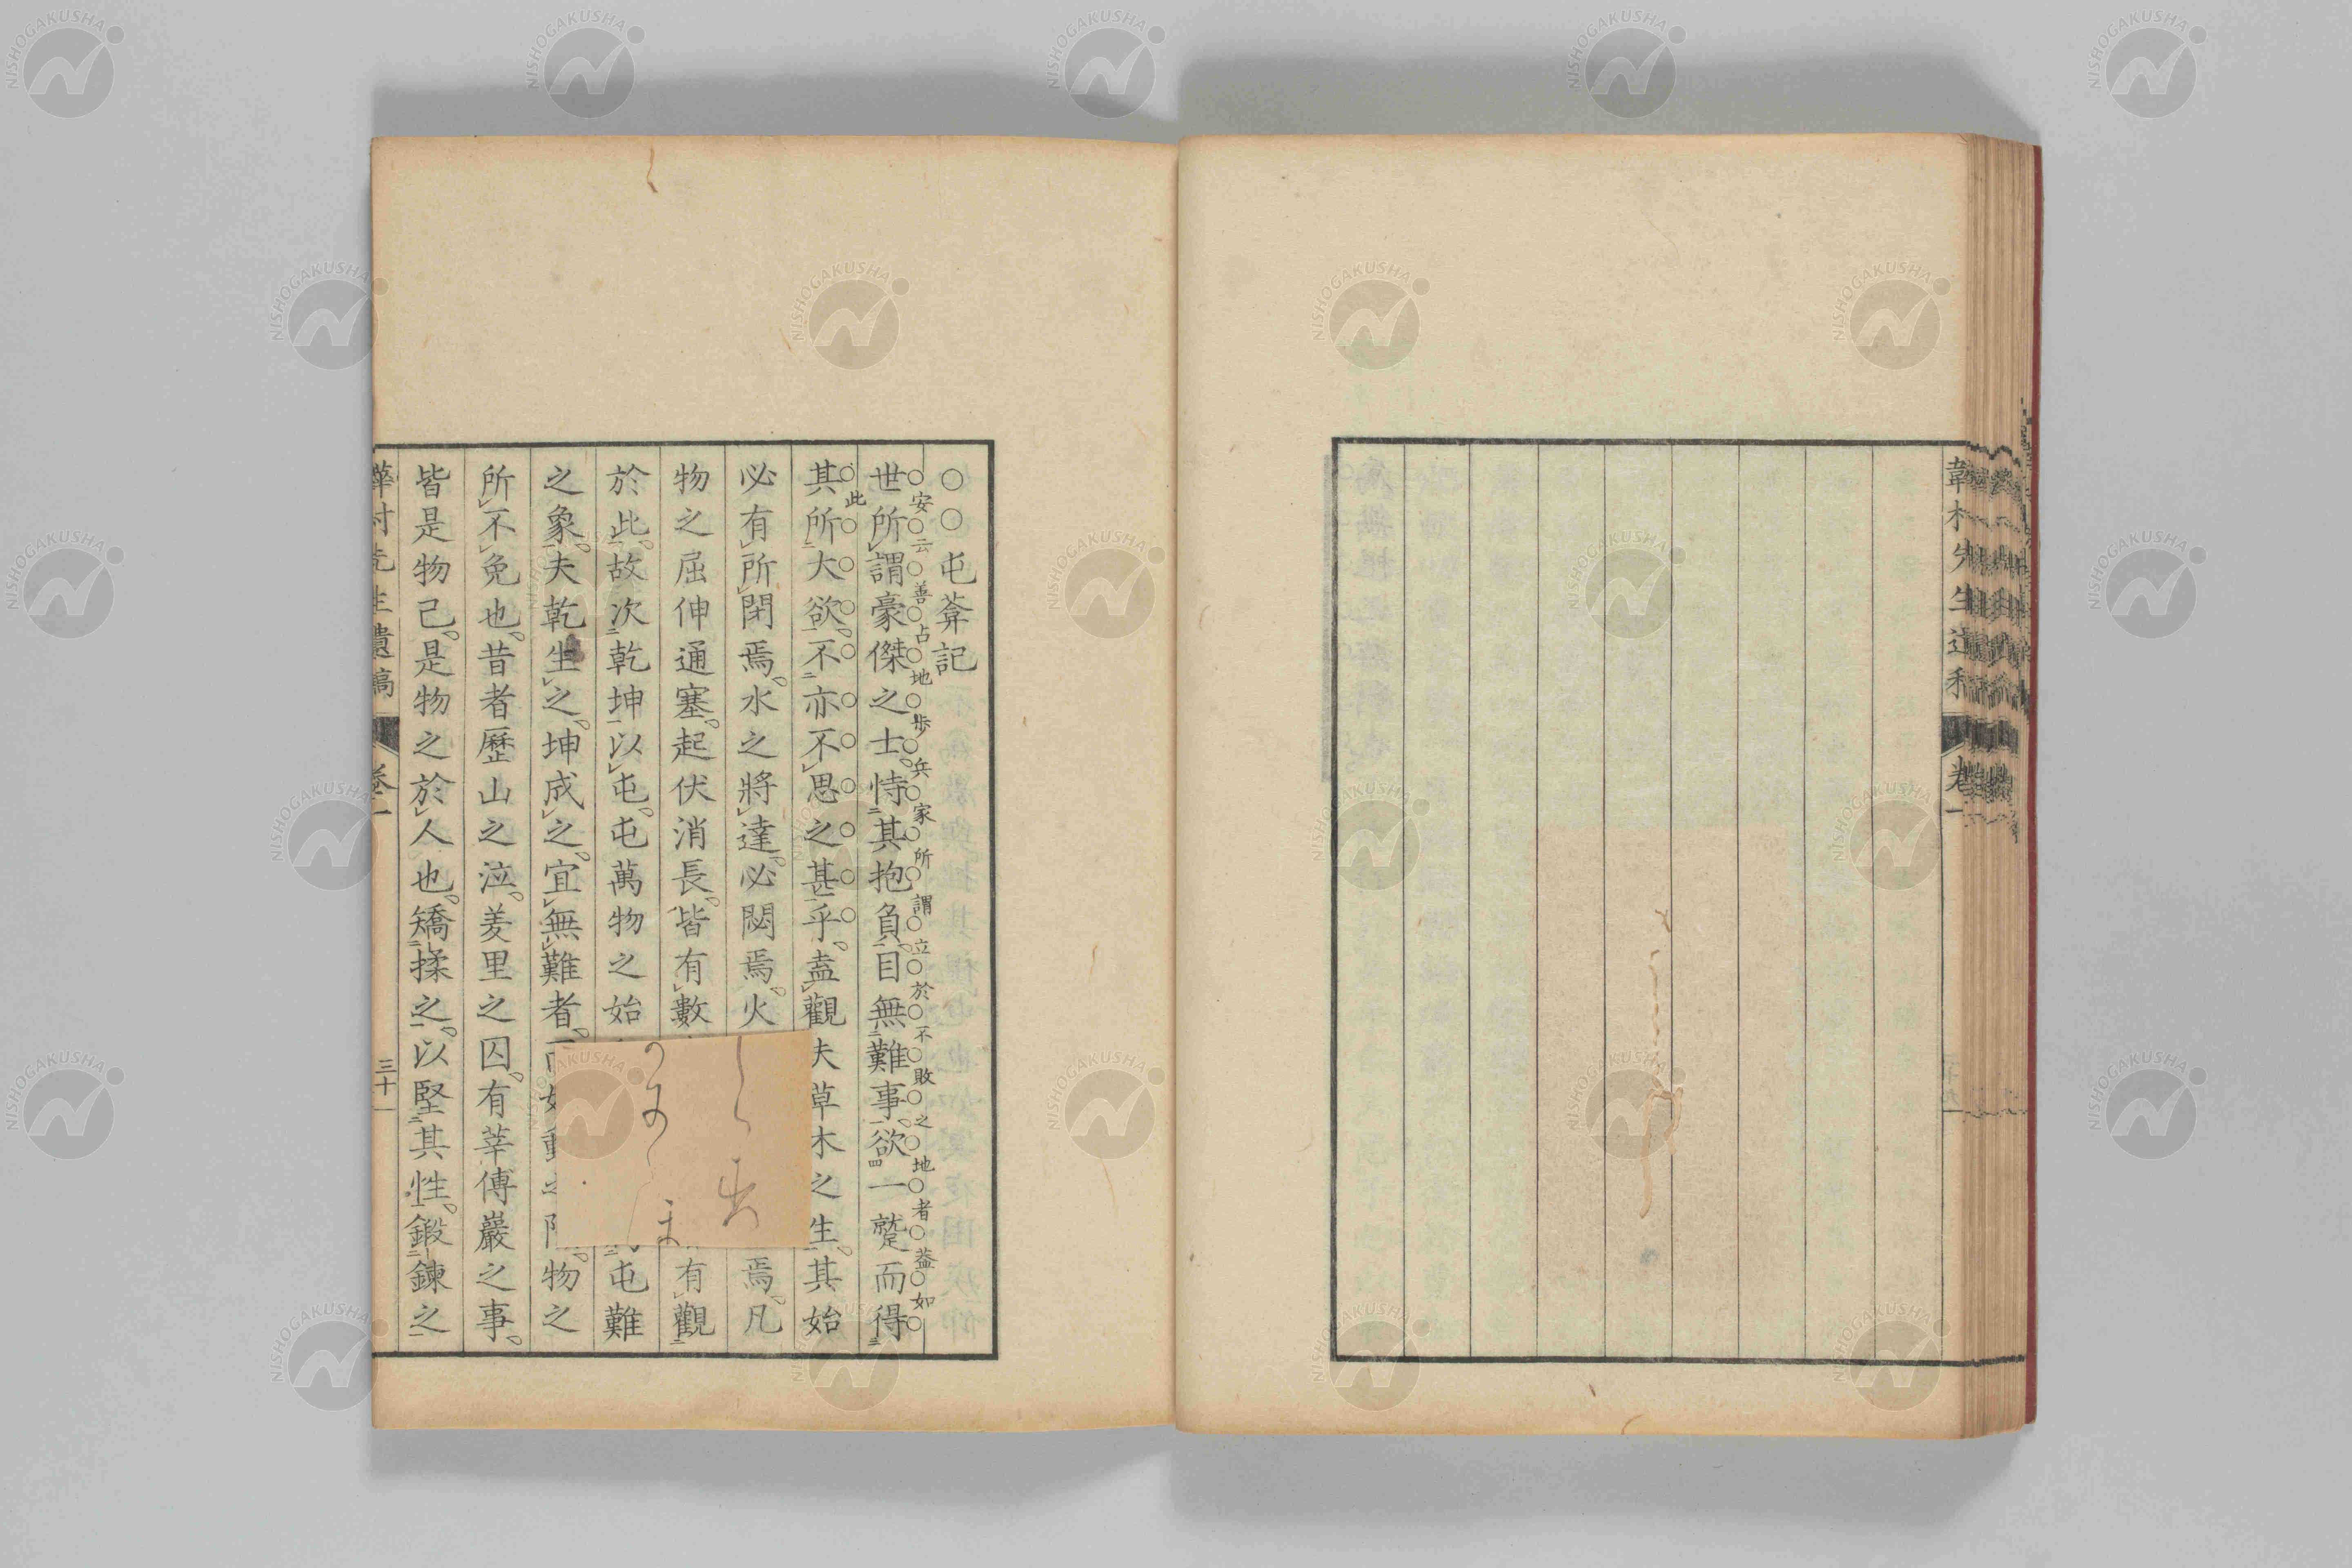 屯葊記
安云善占地步兵家所謂立於不敗之地者蓋如
世所謂豪傑之士恃其抱負目無難事欲一蹴而得
此
其所大欲不亦不思之甚乎盍觀夫草木之生其始
必有所閉焉水之將達必閟焉火焉凡
物之屈伸通塞起伏消長皆有數有觀
於此故次乾坤以屯屯萬物之始屯難
之象夫乾生之坤成之宜無難者物之
所不免也昔者歷山之泣羑里之囚有莘傅巖之事
皆是物已是物之於人也矯揉之以堅其性鍛鍊之
韡村先生遺稿 卷一 三十一
NISHOGAKUSHA